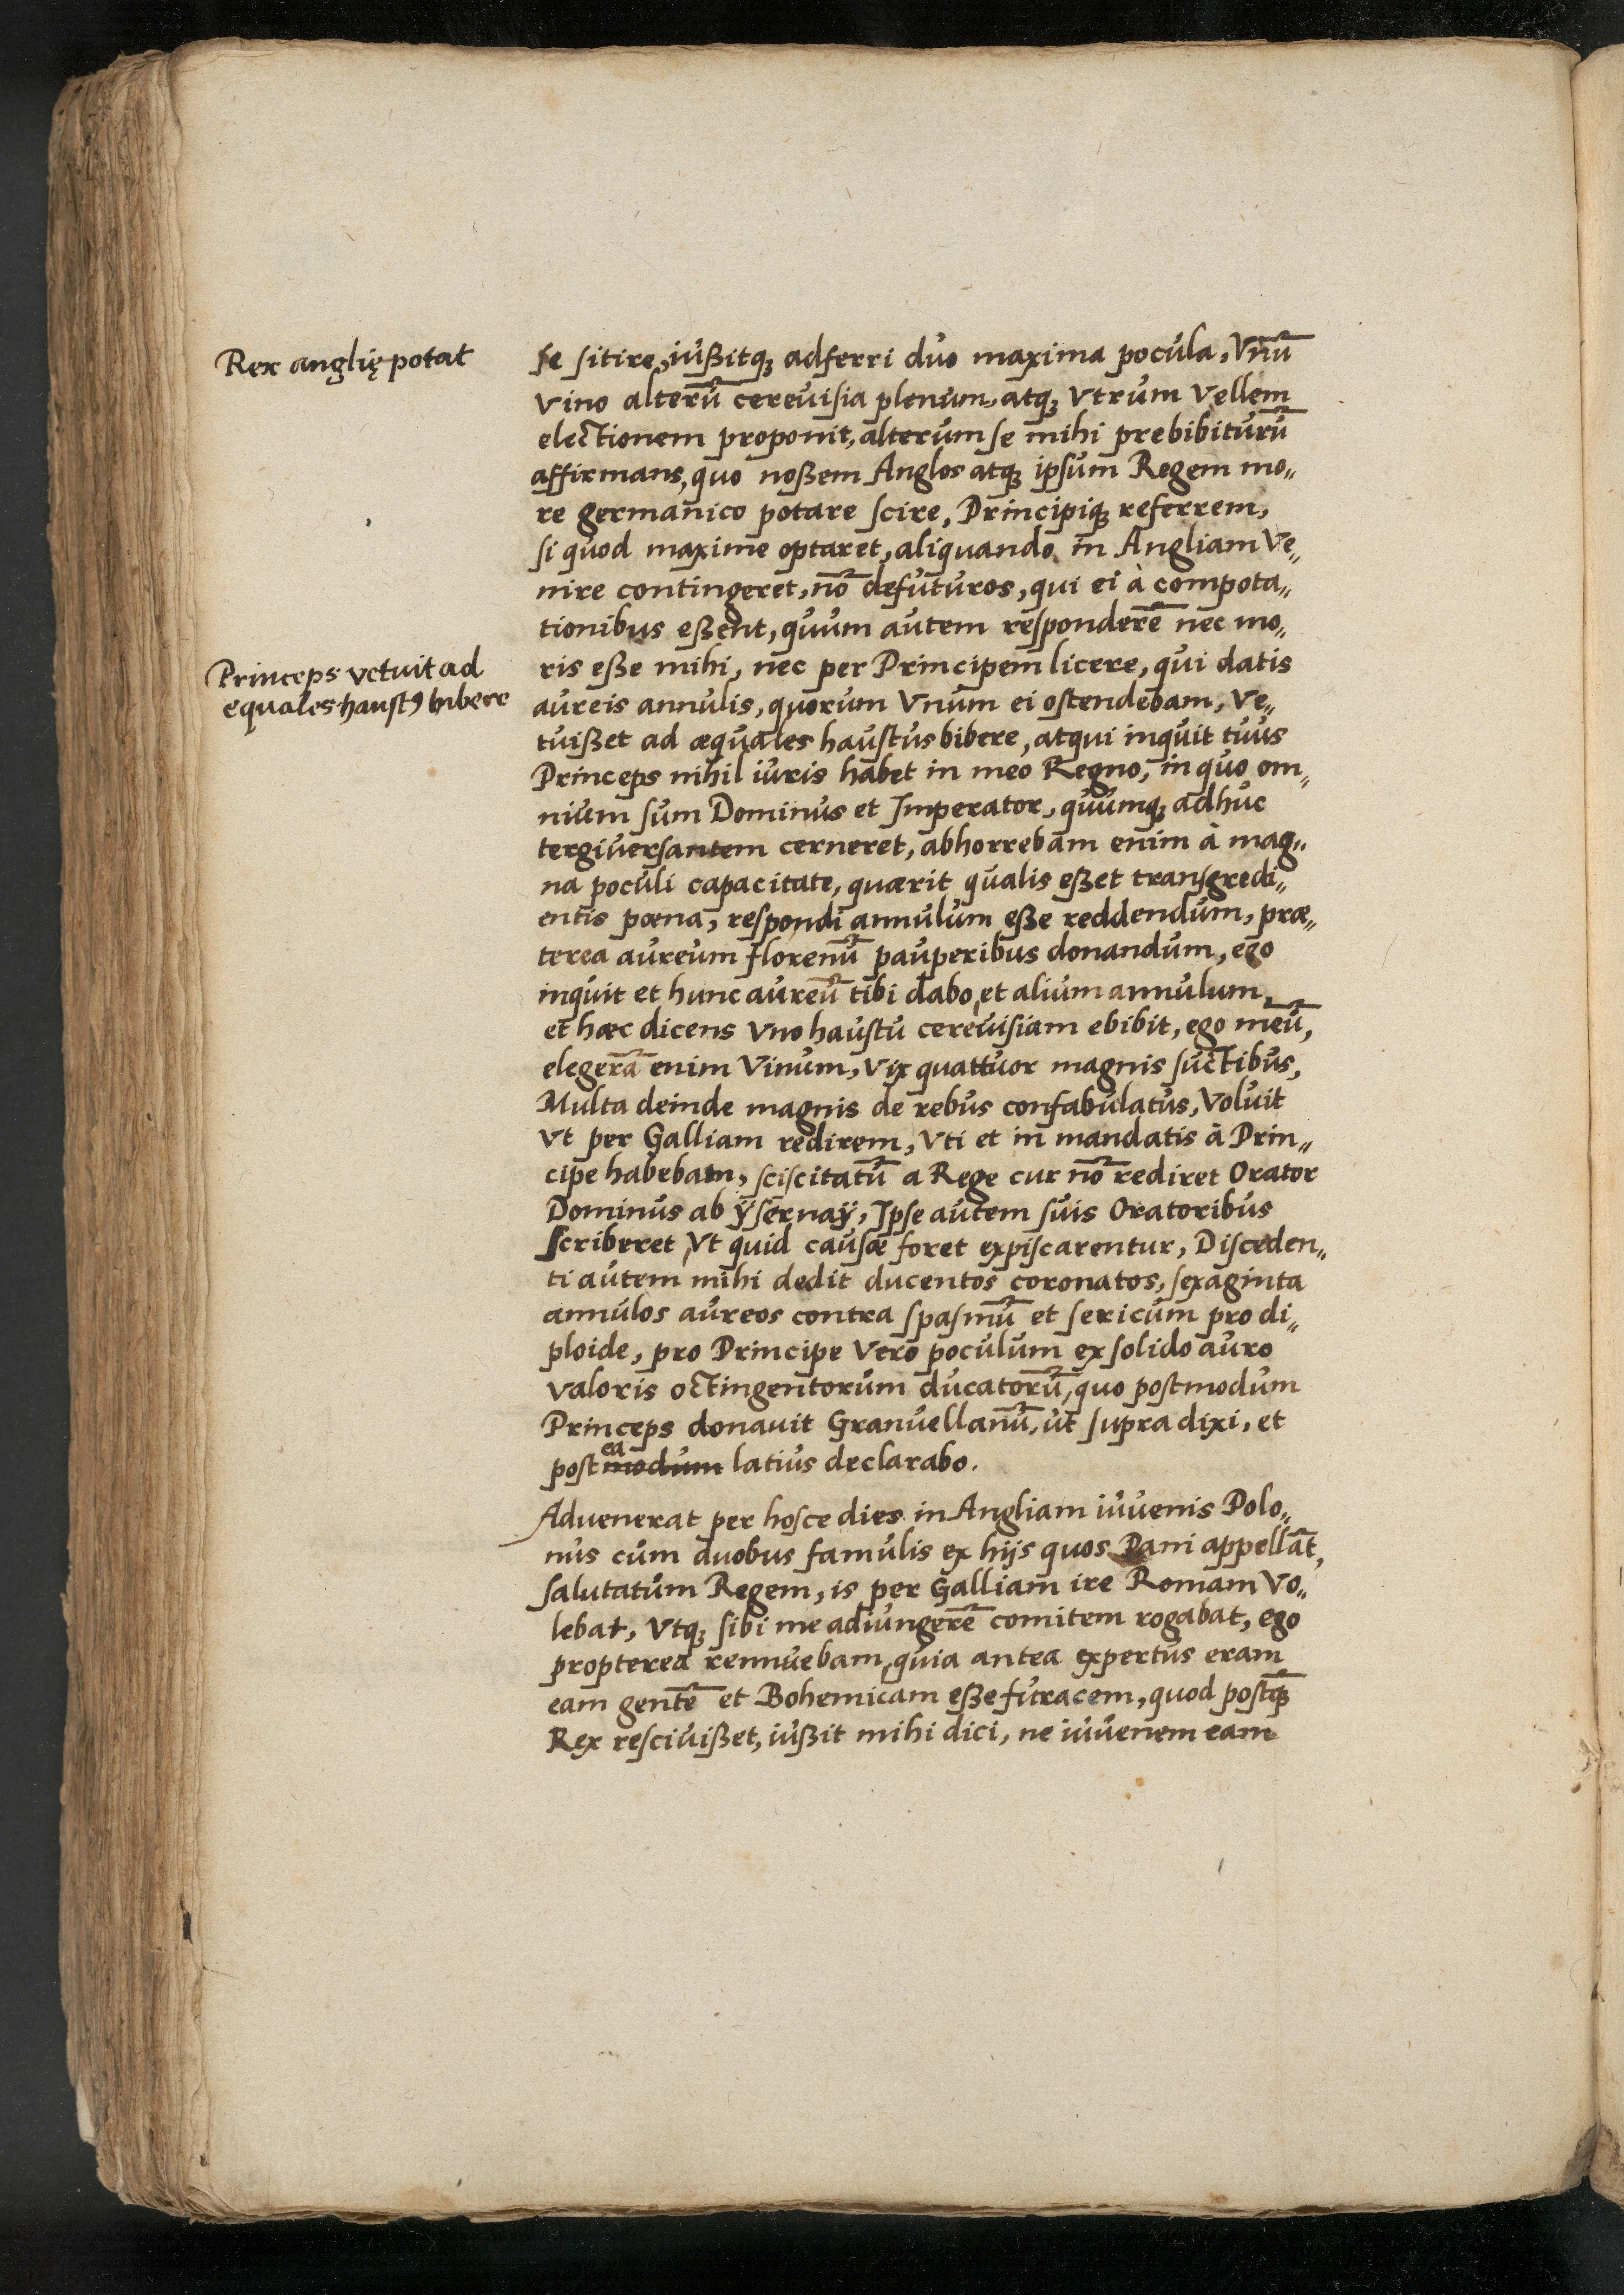 Rex anglię potat
se sitire, iußitq₃ adferri duo maxima pocula, Vnū
vino alterū cereuisia plenum, atq₃ Vtrum Vellem
electionem proponit, alterum se mihi prebibiturū
affirmans, quo noßem Anglos atq₃ ipsum Regem mo„
re germanico potare scire, Principiq₃ referrem,
si quod maxime optaret, aliquando in Angliam Ve„
nire contingeret, nō defuturos, qui ei à compota„
tionibus eßent, quum autem responderē nec mo„
Princeps vetuit ad
equales haustꝰ bibere
ris eße mihi, nec per Principem licere, qui datis
aureis annulis, quorum Vnum ei ostendebam, Ve„
tuißet ad æquales haustus bibere, atqui inquit tuus
Princeps nihil iuris habet in meo Regno, in quo om„
nium sum Dominus et Imperator, quumq₃ adhuc
tergiuersantem cerneret, abhorrebam enim à mag„
na poculi capacitate, quærit qualis eßet transgredi„
entis pœna, respondi annulum eße reddendum, præ„
terea aureum florenū pauperibus donandum, ego
inquit et hunc aureū tibi dabo, et alium annulum,
et hæc dicens vno haustu cereuisiam ebibit, ego meū,
elegerā enim Vinum, Vix quattuor magnis suctibus,
Multa deinde magnis de rebus confabulatus, Voluit
Vt per Galliam redirem, Vti et in mandatis à Prin„
cipe habebam, sciscitatū a Rege cur nō rediret Orator
Dominus ab ÿsernaÿ, Ipse autem suis Oratoribus
scriberet Vt quid causæ foret expiscarentur, Disceden„
ti autem mihi dedit ducentos coronatos, sexaginta
annulos aureos contra spasmū et sericum pro di„
ploide, pro Principe Vero poculum ex solido auro
valoris octingentorum ducatorū, quo postmodum
Princeps donauit Granuellanū, ut supra dixi, et
post modum ea latius declarabo.
Aduenerat per hosce dies in Angliam iuuenis Polo„
nus cum duobus famulis ex hijs quos Pani appellāt,
salutatum Regem, is per Galliam ire Romam Vo„
lebat, Vtq₃ sibi me adiungerē comitem rogabat, ego
propterea rennuebam, quia antea expertus eram
eam gentē et Bohemicam eße furacem, quod postq̄₃
Rex resciuißet, iußit mihi dici, ne iuuenem eam